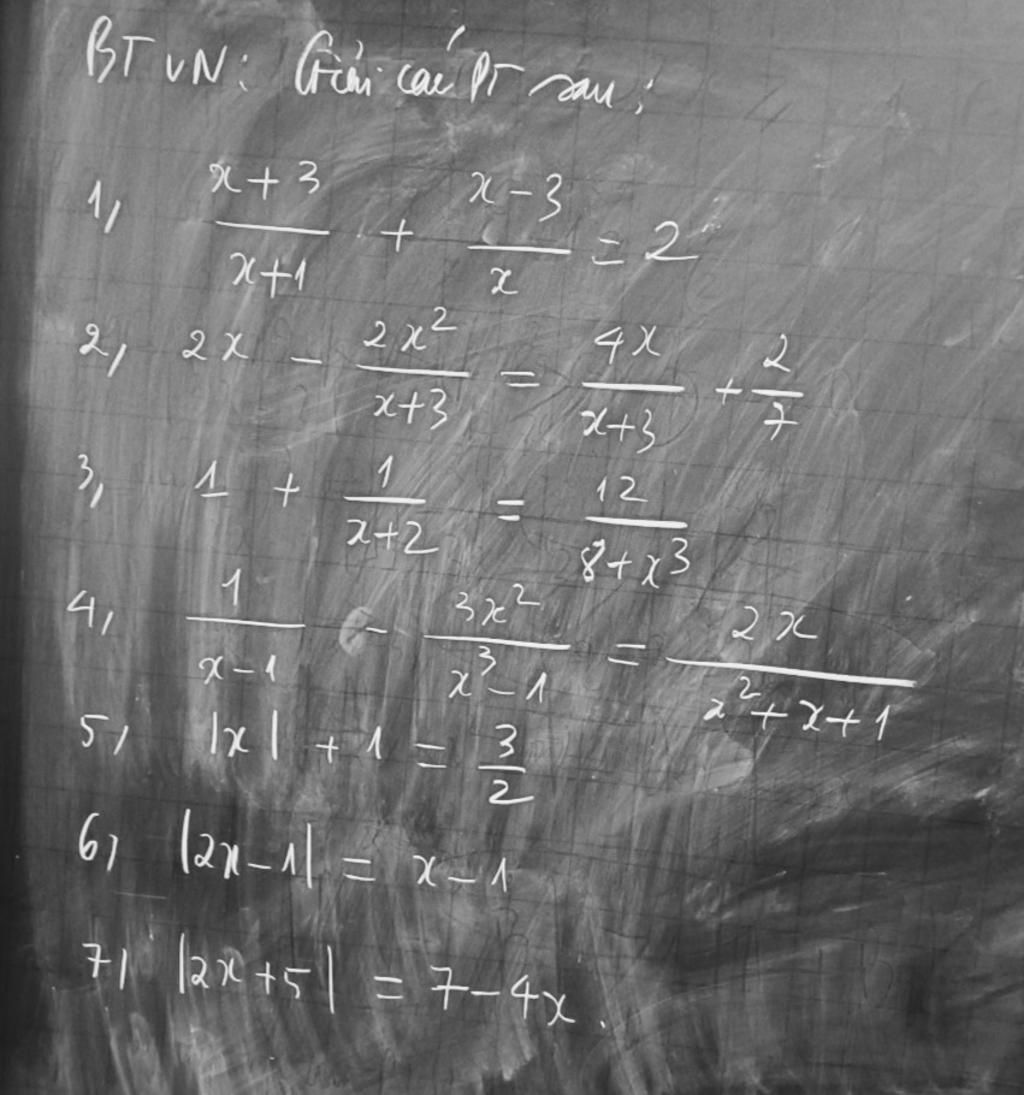 BTVN: Giải các PT sau:
1, \frac{x+3}{x+1} + \frac{x-3}{x} = 2
2, 2x - \frac{2x^2}{x+3} = \frac{4x}{x+3} + \frac{2}{7}
3, 1 + \frac{1}{x+2} = \frac{12}{8+x^3}
4, \frac{1}{x-1} - \frac{3x^2}{x^3-1} = \frac{2x}{x^2+x+1}
5, |x| + 1 = \frac{3}{2}
6, |2x-1| = x-1
7, |2x+5| = 7-4x.